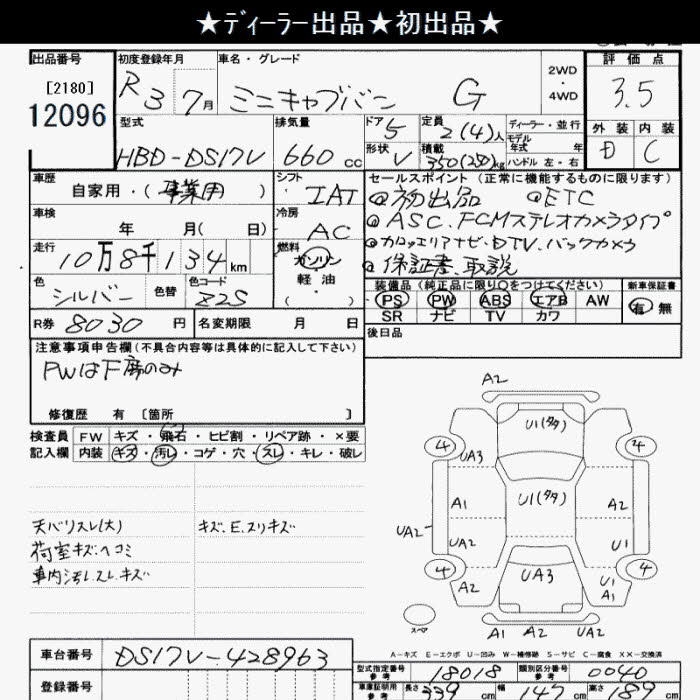 ★ディーラー出品★初出品★
出品番号
[2180]
12096
初度登録年月
R3 7月
車名・グレード
ミニキャブバン G
2WD
・
4WD
評価点
3.5
外装 内装
D C
型式
HBD-DS17V
排気量
660 cc
ドア 5
形状 V
定員
2(4)人
積載
350(250)kg
ディーラー・並行
モデル
年式 年
ハンドル 左・右
車歴
自家用・(事業用)
シフト
IAT
セールスポイント (正常に機能するものに限ります)
初出品 ETC
ASC.FCMステレオカメラタイプ
カロッエリアナビ・DTV.バックカメラ
保証書.取説
車検
年 月( 日)
冷房
AC
走行
10万8千134km
燃料
ガソリン
軽油
( ・ )
色
シルバー
色替
色コード
Z2S
装備品 (純正品に限り○をつけてください)
PS PW ABS エアB AW
SR ナビ TV カワ
新車保証書
有 無
R券 8030 円
名変期限 月 日
後日品
注意事項申告欄 (不具合内容等は具体的に記入して下さい)
PWはF席のみ
修復歴 有 [箇所 ]
検査員 FW キズ・飛石・ヒビ割・リペア跡・×要
記入欄 内装 キズ・汚レ・コゲ・穴・スレ・キレ・破レ
天バリスレ(大)
荷室キズ.ヘコミ
車内汚レ.スレ.キズ
キズ.E.スリキズ
A2
U1(タタ)
4 4
UA3
A1 U1(タタ) A2
UA2
UA2 U1
4 4
A2 UA3 U1
A1
スペア
A1 A2 UA2
A-キズ E-エクボ U-凹み W-補修跡 S-サビ C-腐食 XX-交換済
車台番号 DS17V-428963
登録番号
型式指定番号
参考
18018
類別区分番号
参考
0040
車庫証明用
参考
長さ 339 cm 幅 147 cm 高さ 189 cm